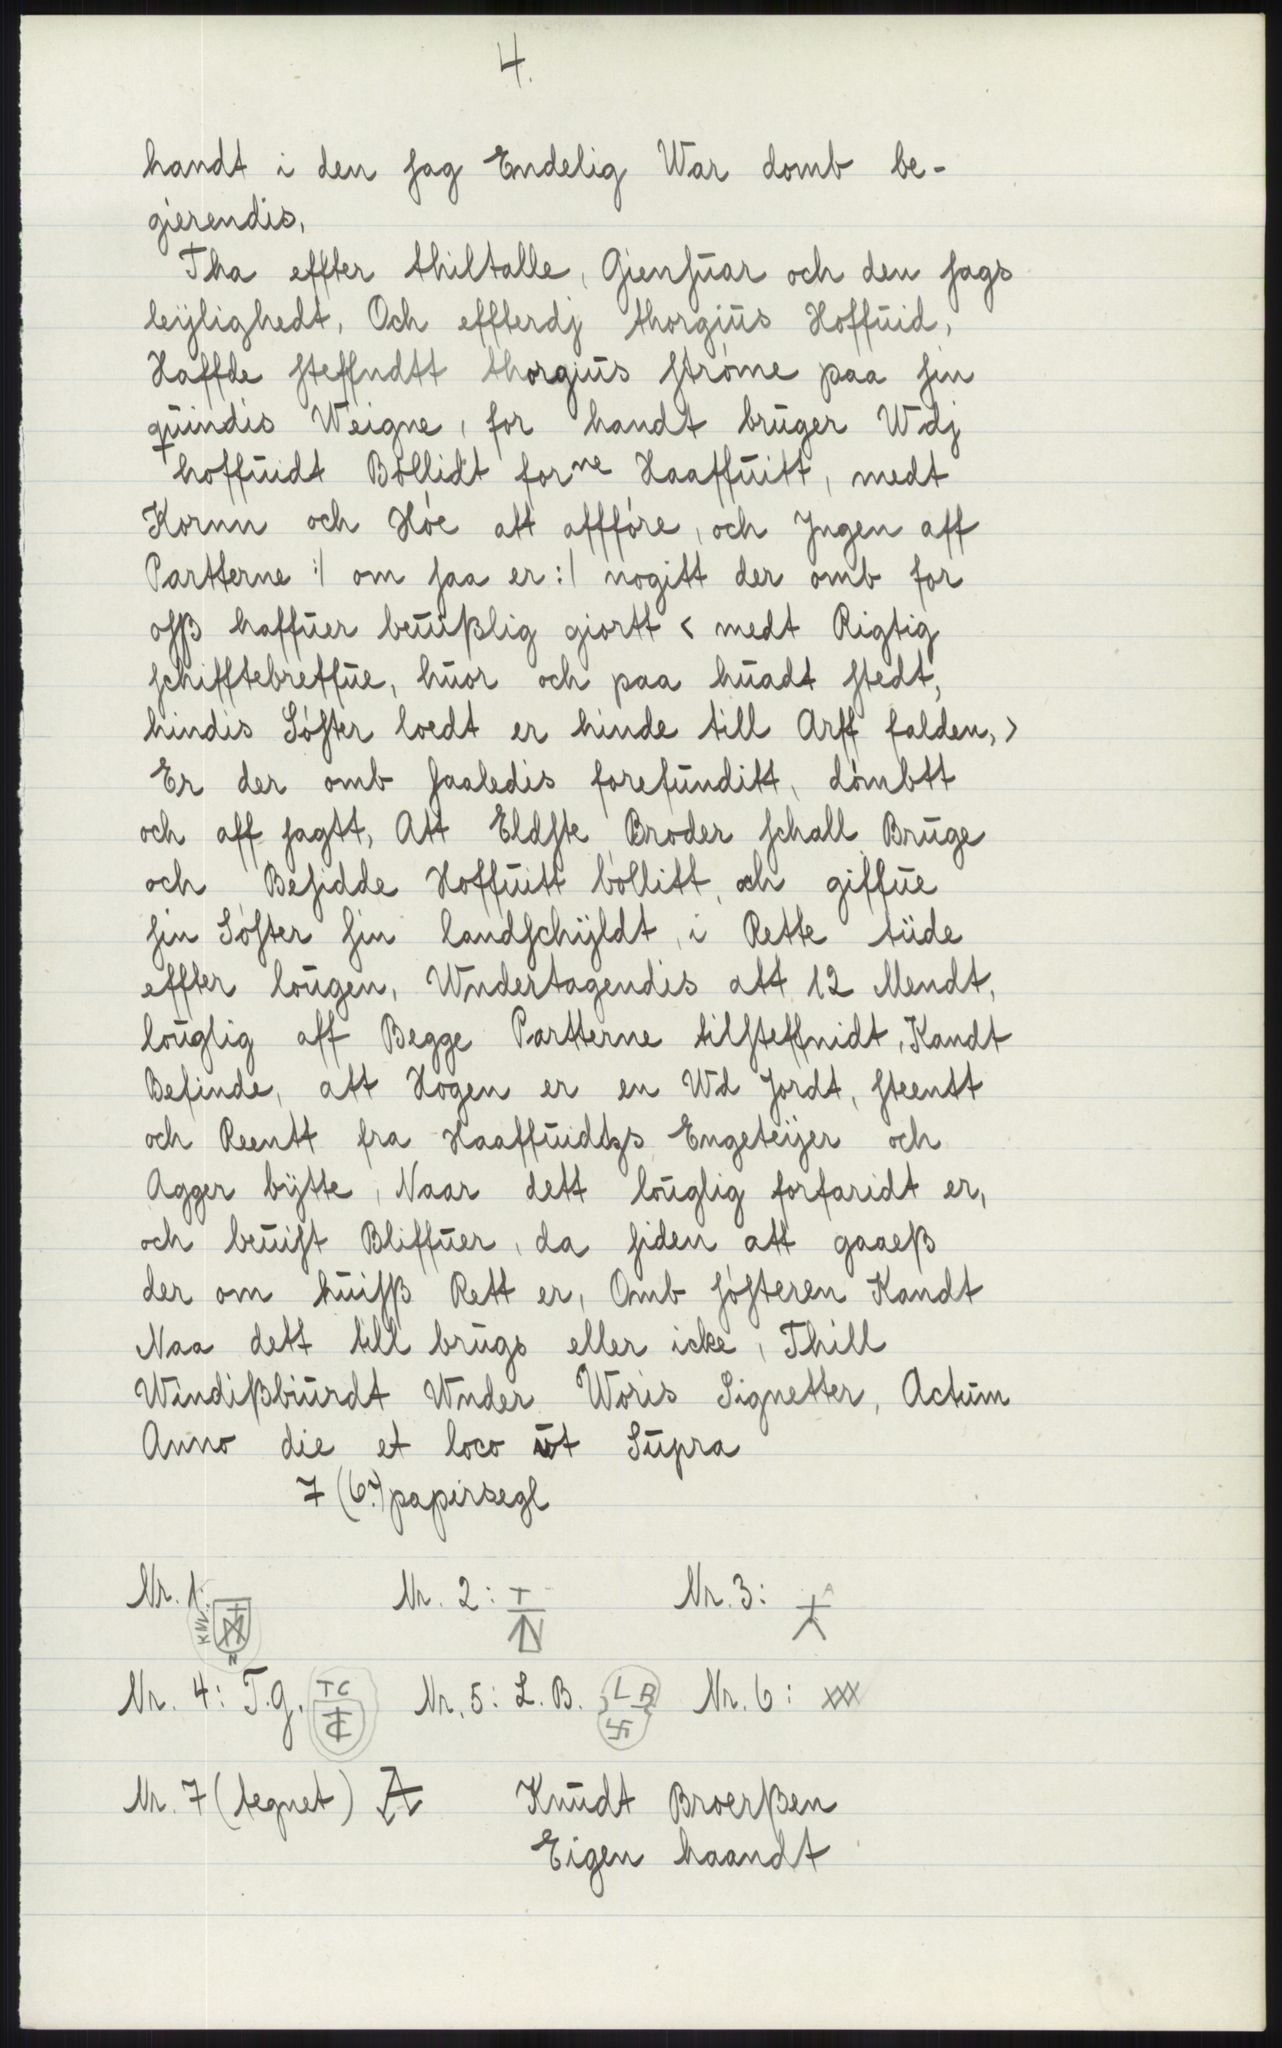 4.
handt i den sag Endelig War domb be-
gierendis,
Tha effter thiltalle, Giensūar och den sags
leÿlighedt, Och effterdj thorgiūs Hoffūid,
Haffde steffndtt thorgiūs ströme paa sin
qūindis Weigne, for handt brūger Wdj
hoffūidt Böllidt forne Haaffūitt, medt
Kornn och Höe att affföre, och Jngen aff
Partterne :/ om saa er :/ nogitt der omb for
osß haffūer beūißlig giortt < medt Rigtig
schifftebreffūe, hūor och paa hūadt stedt,
hindis Söster loedt er hinde till Arff falden, >
Er der omb saaledis forefūnditt, dömbtt
och aff sagtt, Att Eldste Broder schall Brūge
och Besidde Hoffūitt böllitt, och giffūe
sin Söster sin landschÿldt, i Rette tiide
effter loūgen, Wndertagendis att 12 Mendt,
loūglig aff Begge Partterne tilsteffnidt, Kandt
Befinde, att Hogen er en Wd Jordt, steentt
och Reentt fra Haaffūidtzs Engeteÿer och
Agger bÿtte, Naar dett loūglig forfaridt er,
och beūist Bliffūer, da siden att gaaeß
der om hūisß Rett er, Omb sösteren Kandt
Naa dett till brūgs eller icke, Thill
Windißbiūrdt Wnder Woris Signetter, Actūm
Anno die et loco ūt Sūpra
7 (6?) papirsegl
Nr. 1: KNN Nr. 2: T Nr. 3:
Nr. 4: T.G. TC Nr. 5: L.B. LB Nr. 6: XXX
Nr. 7 (tegnet) Knūdt Broerßen
Eigen haandt